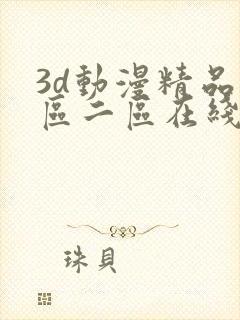 3d動漫精品
區二區在綫
珠貝